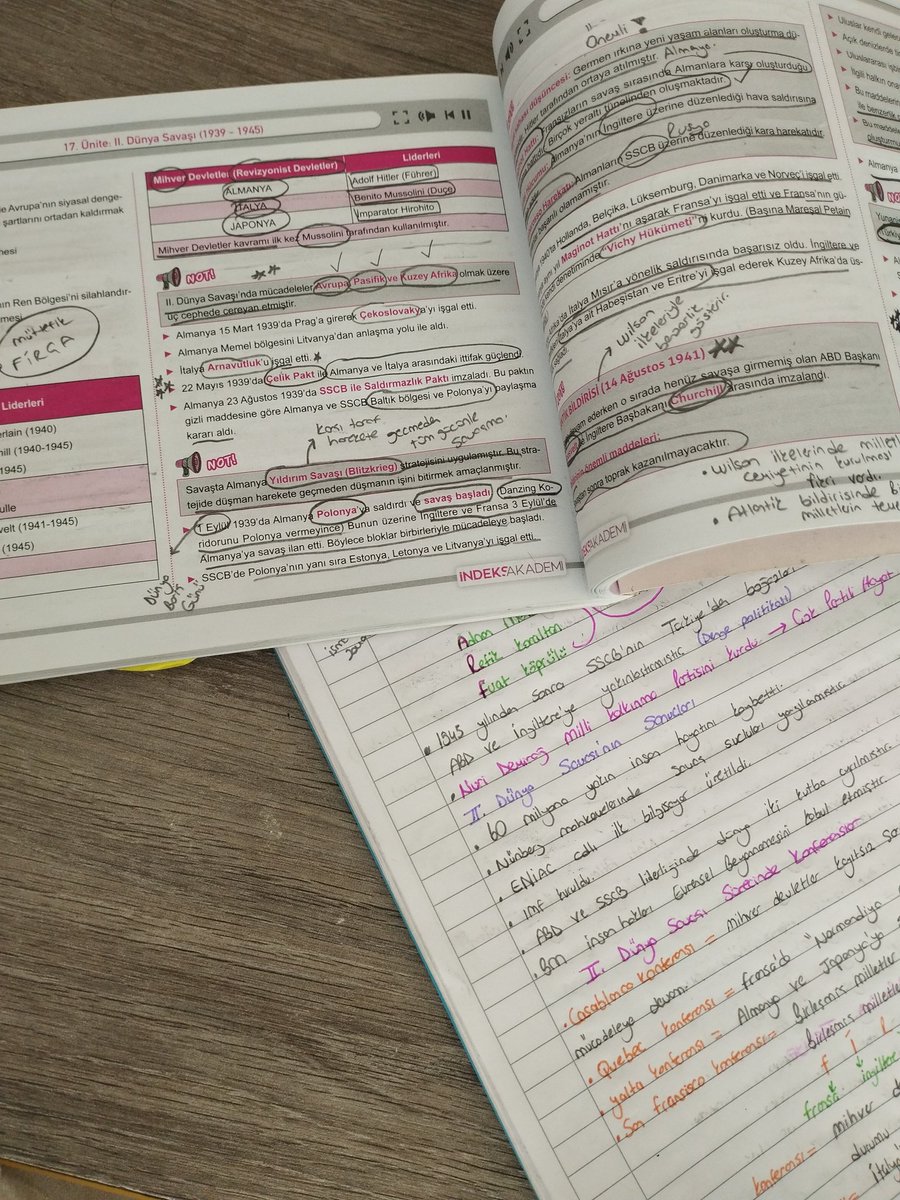 17. Ünite: II. Dünya Savaşı (1939 - 1945)
le Avrupa'nın siyasal denge-
şartlarını ortadan kaldırmak
mesi
nın Ren Bölgesi'ni silahlandır-
mesi
müttefik
FİRGA
Liderleri
erlain (1940)
hill (1940-1945)
1945)
ulle
velt (1941-1945)
(1945)
Mihver Devletler (Revizyonist Devletler)
Liderleri
ALMANYA
Adolf Hitler (Führer)
İTALYA
Benito Mussolini (Duçe)
JAPONYA
İmparator Hirohito
Mihver Devletler kavramı ilk kez Mussolini tarafından kullanılmıştır.
NOT!
II. Dünya Savaşı'nda mücadeleler Avrupa, Pasifik ve Kuzey Afrika olmak üzere
üç cephede cereyan etmiştir.
Almanya 15 Mart 1939'da Prag'a girerek Çekoslovakya'yı işgal etti.
Almanya Memel bölgesini Litvanya'dan anlaşma yolu ile aldı.
İtalya Arnavutluk'u işgal etti.
22 Mayıs 1939'da Çelik Pakt ile Almanya ve İtalya arasındaki ittifak güçlendi.
Almanya 23 Ağustos 1939'da SSCB ile Saldırmazlık Paktı imzaladı. Bu paktın
gizli maddesine göre Almanya ve SSCB Baltık bölgesi ve Polonya'yı paylaşma
kararı aldı.
karşı taraf
harekete geçmeden
tüm gücünle
savaşma.
NOT!
Savaşta Almanya Yıldırım Savaşı (Blitzkrieg) stratejisini uygulamıştır. Bu stra-
tejide düşman harekete geçmeden düşmanın işini bitirmek amaçlanmıştır.
1 Eylül 1939'da Almanya Polonya'ya saldırdı ve savaş başladı (Danzing Ko-
ridorunu Polonya vermeyince) Bunun üzerine İngiltere ve Fransa 3 Eylül'de
Almanya'ya savaş ilan etti. Böylece bloklar birbirleriyle mücadeleye başladı.
SSCB'de Polonya'nın yanı sıra Estonya, Letonya ve Litvanya'yı işgal etti.
Dünya
Barış
Günü
İNDEKSAKADEMİ
Önemli
düşüncesi: Germen ırkına yeni yaşam alanları oluşturma dü-
Hitler tarafından ortaya atılmıştır. Almanya.
Fransızların savaş sırasında Almanlara karşı oluşturduğu
Birçok yeraltı tünelinden oluşmaktadır.
Almanya'nın İngiltere üzerine düzenlediği hava saldırısına
Rusya
Harekatı: Almanların SSCB üzerine düzenlediği kara harekatıdır.
başarılı olamamıştır.
1940'ta Hollanda, Belçika, Lüksemburg, Danimarka ve Norveç'i işgal etti.
Maginot Hattı'nı aşarak Fransa'yı işgal etti ve Fransa'nın gü-
denetiminde "Vichy Hükümeti"ni kurdu. (Başına Mareşal Petain
İtalya Mısır'a yönelik saldırısında başarısız oldu. İngiltere ve
İtalya'ya ait Habeşistan ve Eritre'yi işgal ederek Kuzey Afrika'da üs-
wilson
ilkeleriyle
benzerlik
gösterir.
BİLDİRİSİ (14 Ağustos 1941)
ederken o sırada henüz savaşa girmemiş olan ABD Başkanı
İngiltere Başbakanı Churchill arasında imzalandı.
önemli maddeleri:
sonra toprak kazanılmayacaktır.
• Wilson ilkelerinde milletler
cemiyetinin kurulması
fikri vardı.
• Atlantik bildirisinde bir
milletlerin teme
AKADEMİ
Uluslar kendi gelece
Açık denizlerde
Uluslararası
İlgili halkın
Bu maddelerin
ile benzerlik
Bu madde
oluşturmu
Almanya
NOT
Yunan
Türkiye
Refik Koraltan
Fuat Köprülü
• 1945 yılından sonra SSCB'nin Türkiye'den boğazlar
ABD ve İngiltere'ye yakınlaştırmıştır (Denge politikası)
• Nuri Demirağ Milli kalkınma Partisini kurdu → Çok Partili Hayat
II. Dünya Savaşı'nın Sonuçları
• 60 milyona yakın insan hayatını kaybetti.
• Nünberg mahkemelerinde savaş suçluları yargılanmıştır.
• ENİAC adlı ilk bilgisayar üretildi.
• Imf kuruldu.
• ABD ve SSCB liderliğinde dünya iki kutba ayrılmıştır.
• Bm insan hakları Evrensel Beyannamesini kabul etmiştir.
II. Dünya Savaşı Sürecinde konferanslar
• Casablanca konferansı = mihver devletler kayıtsız
mücadeleye devam.
• Quebec konferansı = fransa'da "Normandiya
• yalta konferansı = Almanya ve Japonya'ya
• San fransisco konferansı = Birleşmiş milletler
Birleşmiş milletle
f İ
fransa ingiltere
konferansı = mihver
durumu
İtalya